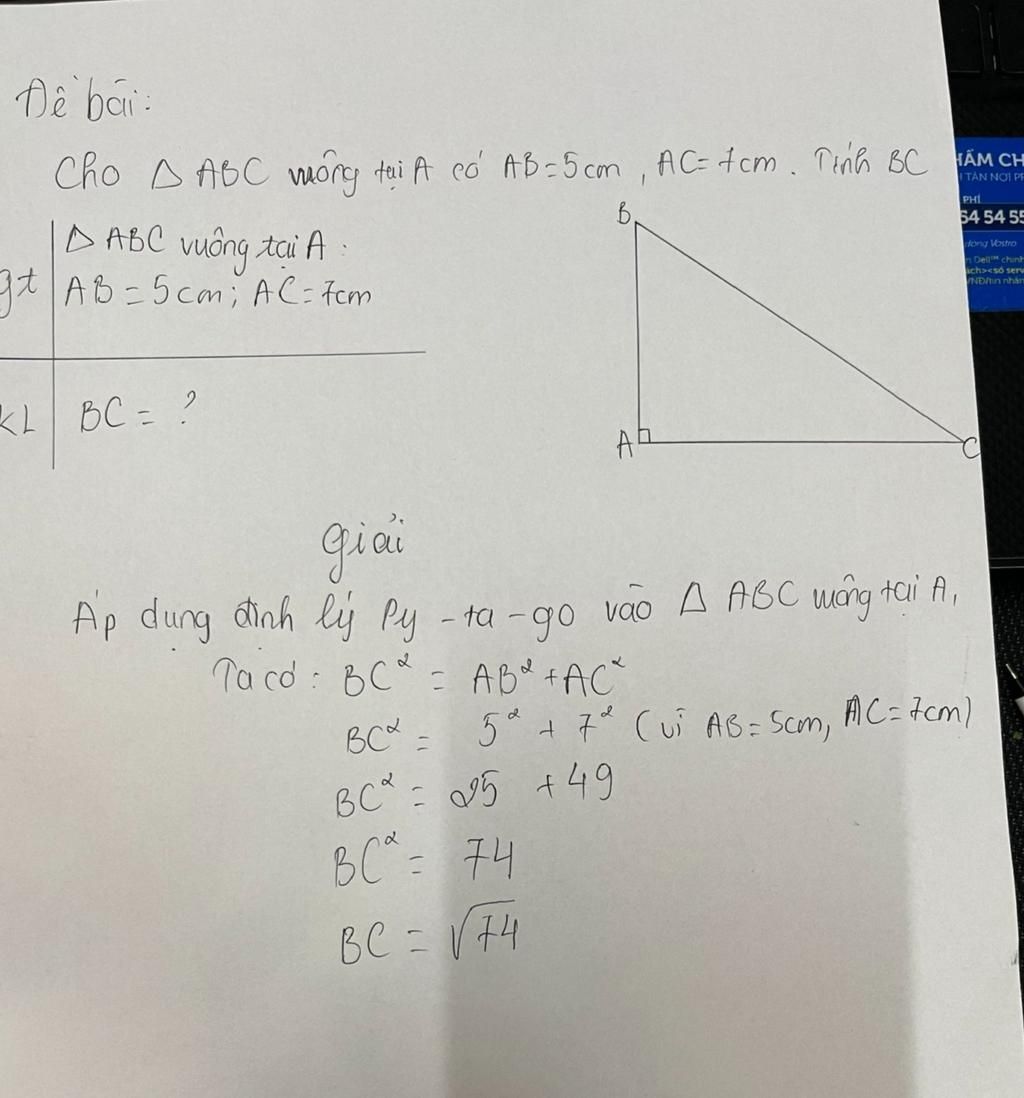 Đề bài:
Cho △ ABC vuông tại A có AB=5cm, AC=7cm. Tính BC
gt
△ ABC vuông tại A:
AB = 5cm; AC=7cm
KL
BC = ?
B
A
C
Giải
Áp dụng định lý Py-ta-go vào △ ABC vuông tại A,
Ta có: BC² = AB² + AC²
BC² = 5² + 7² (vì AB=5cm, AC=7cm)
BC² = 25 + 49
BC² = 74
BC = √74
TẬN NƠI
PHÍ
54 54 55
dòng Vostro
Dell™ chính